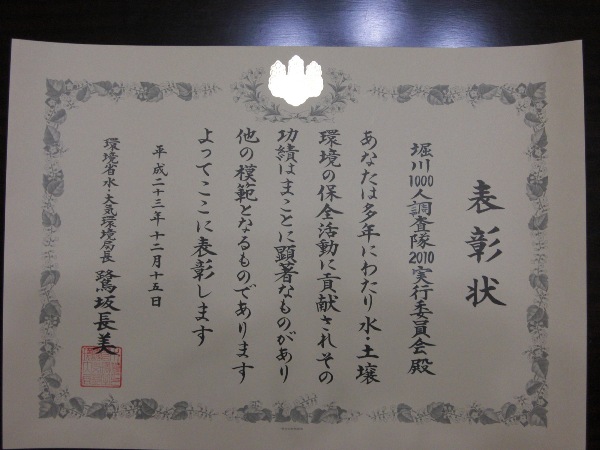 表彰状
堀川1000人調査隊2010実行委員会殿
あなたは多年にわたり水・土壌
環境の保全活動に貢献されその
功績はまことに顕著なものがあり
他の模範となるものであります
よってここに表彰します
平成二十三年十二月十五日
環境省水・大気環境局長 鷺坂長美